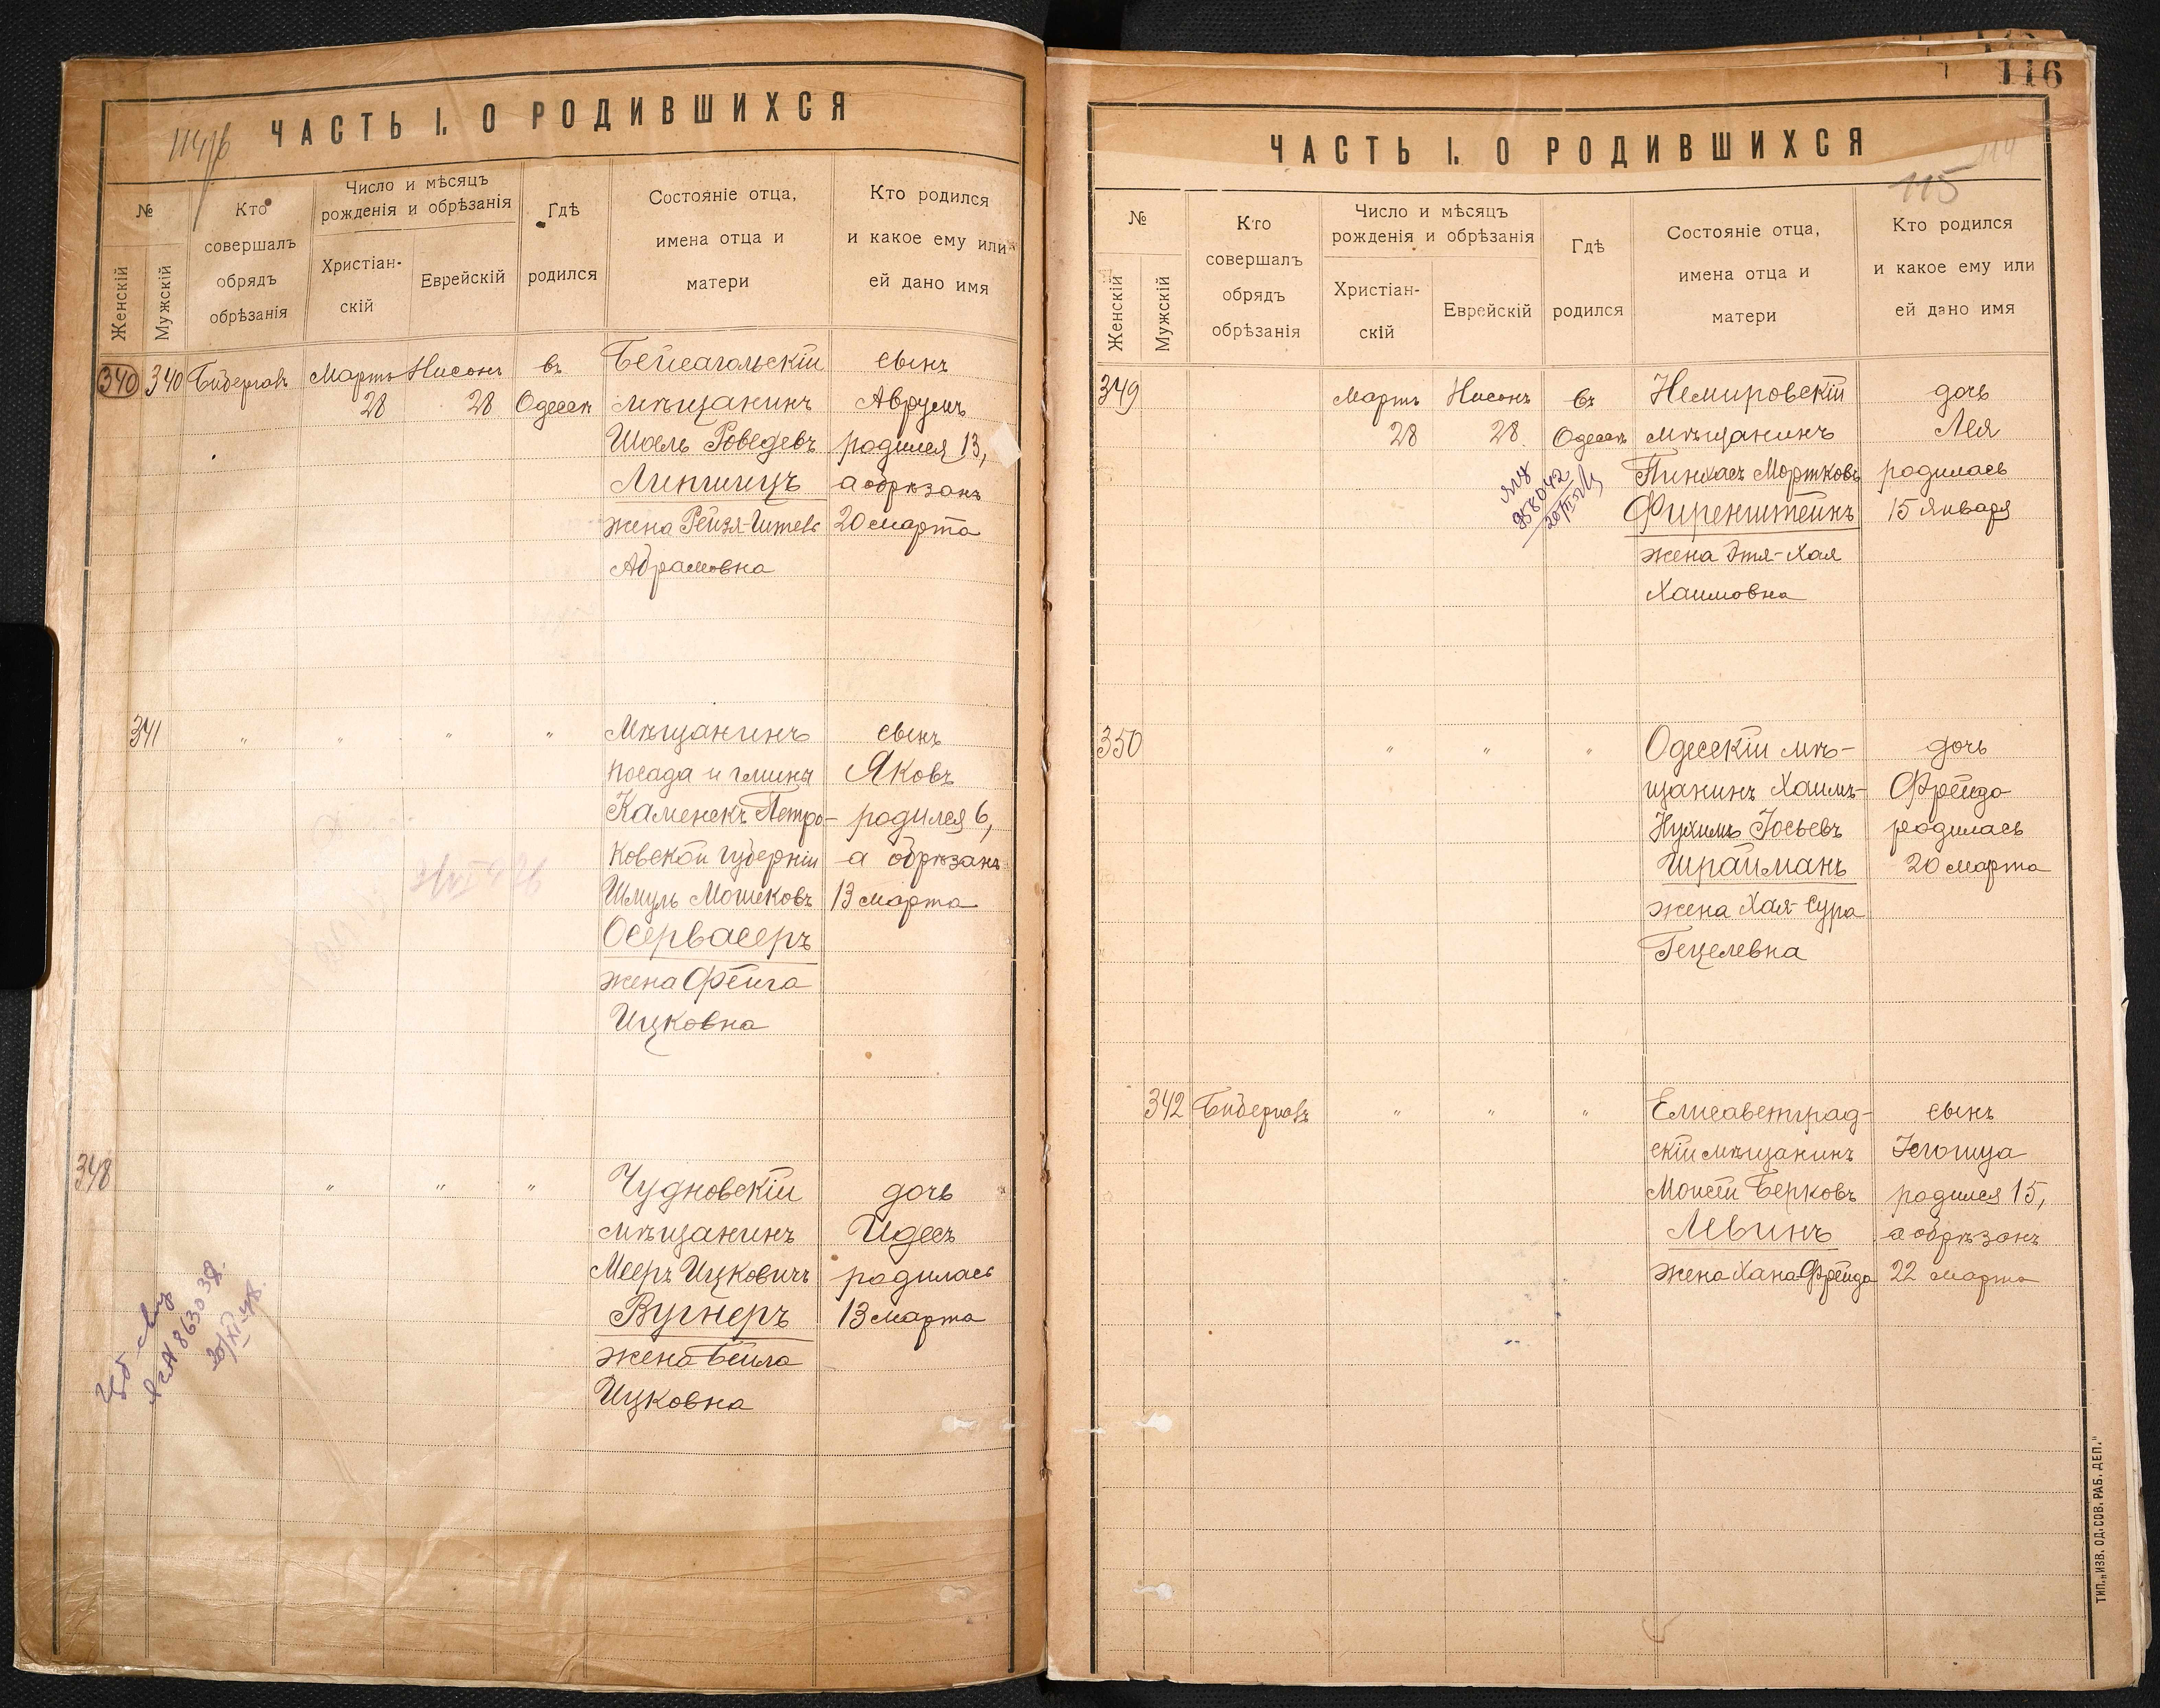 ЧАСТЬ I. О РОДИВШИХСЯ
№
Женскій
Мужскій
Кто
совершалъ
обрядъ
обрѣзанія
Число и мѣсяцъ
рожденія и обрѣзанія
Христіан-
скій
Еврейскій
Гдѣ
родился
Состояніе отца,
имена отца и
матери
Кто родился
и какое ему или
ей дано имя
340
340
Мартъ
28
Нисонъ
28
въ
Одессѣ
мѣщанинъ
Шоель
Липшицъ
жена
Абрамовна
сынъ
Аврумъ
родился 13,
а обрѣзанъ
20 марта
341
"
"
"
"
Мѣщанинъ
посада и гмины
Каменскъ Петро-
ковской губерніи
Шмуль Мошковъ
Осервасеръ
жена Фейга
Ицковна
сынъ
Яковъ
родился 6,
а обрѣзанъ
13 марта
348
"
"
"
Чудновскій
мѣщанинъ
Мееръ Ицковичъ
Вугнеръ
жена Бейла
Ицковна
дочь
Идесъ
родилась
13 марта
116
ЧАСТЬ I. О РОДИВШИХСЯ
115
№
Женскій
Мужскій
Кто
совершалъ
обрядъ
обрѣзанія
Число и мѣсяцъ
рожденія и обрѣзанія
Христіан-
скій
Еврейскій
Гдѣ
родился
Состояніе отца,
имена отца и
матери
Кто родился
и какое ему или
ей дано имя
349
Мартъ
28
Нисонъ
28
въ
Одессѣ
Немировскій
мѣщанинъ
Пинхасъ Мортковъ
Фиренштейнъ
жена Этя-Хая
Хаимовна
дочь
Лея
родилась
15 Января
350
"
"
"
Одесскій мѣ-
щанинъ Хаимъ-
Нухимъ Іосьевъ
Шрайманъ
жена Хая-Сура
Гецелевна
дочь
Фрейда
родилась
20 марта
342
"
"
"
Елисаветград-
скій мѣщанинъ
Моисей Берковъ
Левинъ
жена Хана Фрейда
сынъ
Іегошуа
родился 15,
а обрѣзанъ
22 марта
ТИП. „ИЗВ. ОД. СОВ. РАБ. ДЕП."